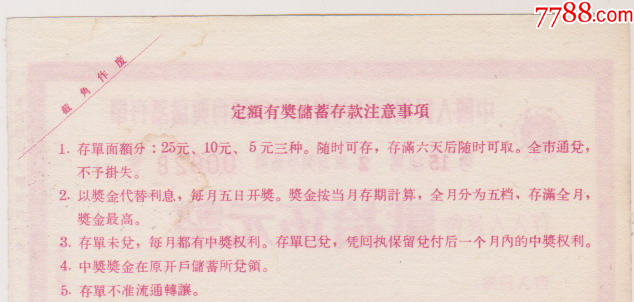 7788.com
截角作废
定額有奬儲蓄存款注意事項
1. 存單面額分：25元、10元、5元三种。随时可存，存滿六天后随时可取。全市通兌，
不予掛失。
2. 以奬金代替利息，每月五日开奬。奬金按当月存期計算，全月分为五档，存滿全月，
奬金最高。
3. 存單未兌，每月都有中奬权利。存單巳兌，凭囘执保留兌付后一个月內的中奬权利。
4. 中奬奬金在原开戶儲蓄所兌領。
5. 存單不准流通轉讓。